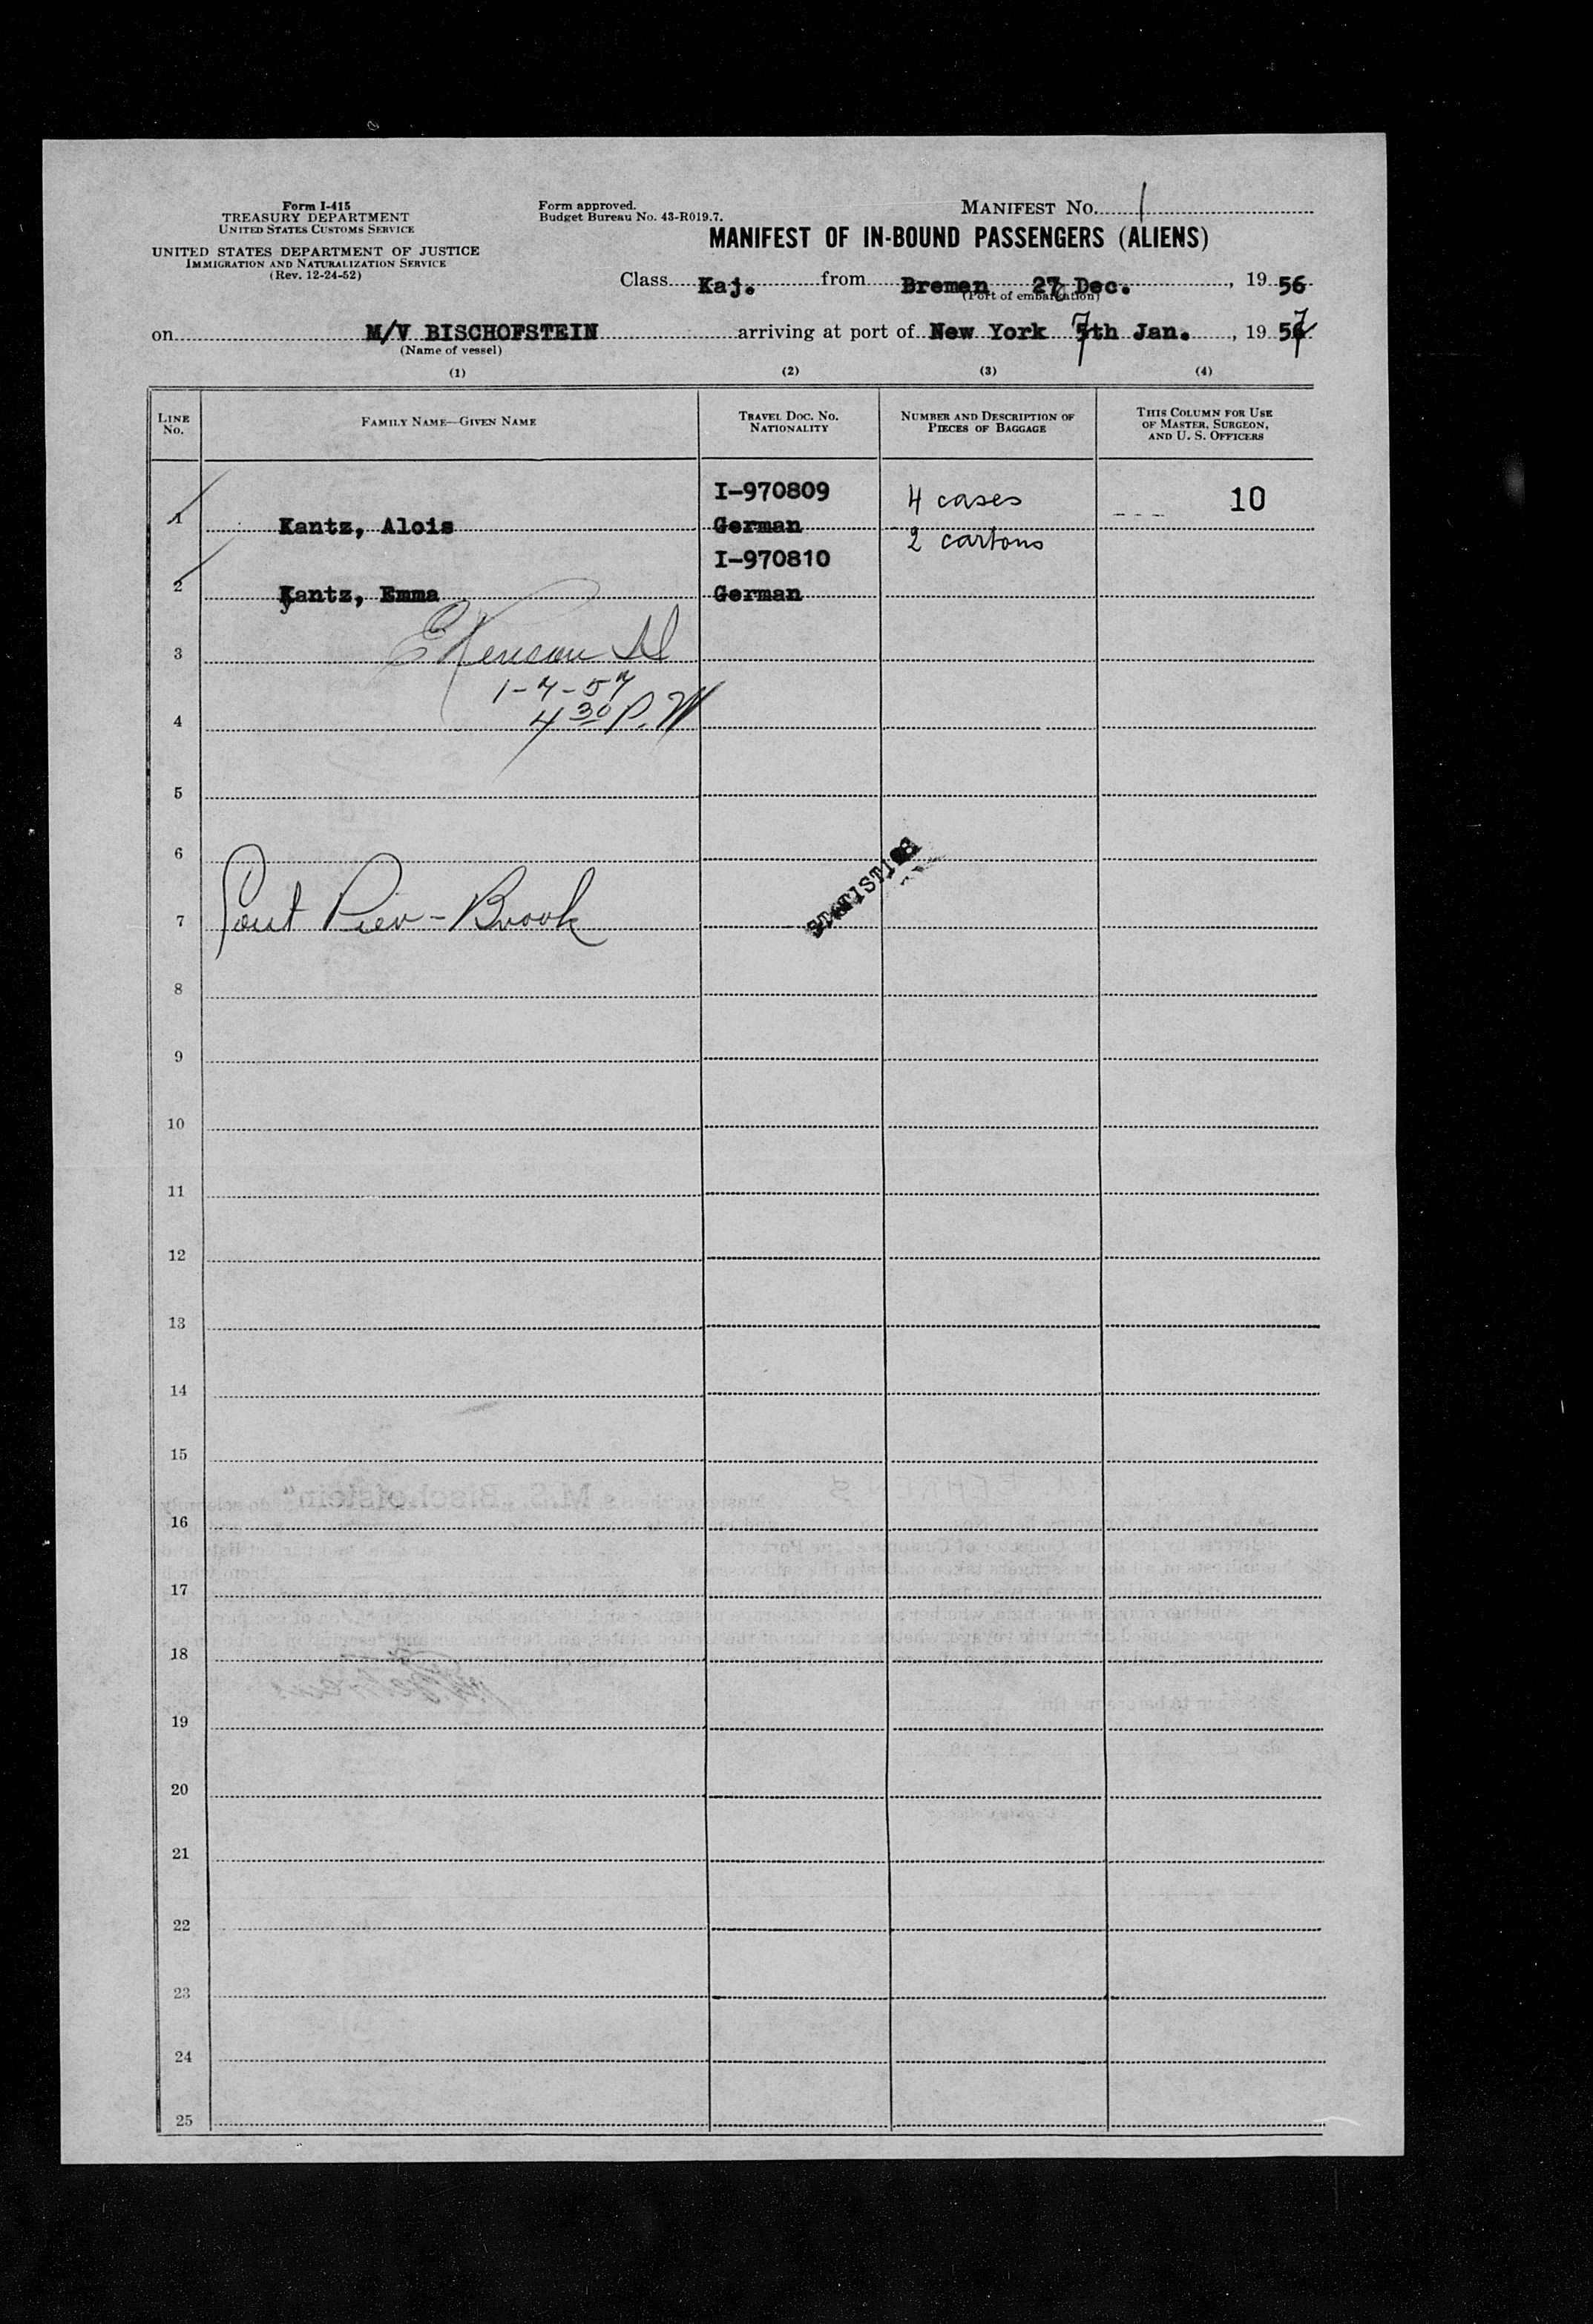 Form I-415
TREASURY DEPARTMENT
UNITED STATES CUSTOMS SERVICE
UNITED STATES DEPARTMENT OF JUSTICE
IMMIGRATION AND NATURALIZATION SERVICE
(Rev. 12-24-52)
Form approved.
Budget Bureau No. 43-R019.7.
MANIFEST NO. 1
MANIFEST OF IN-BOUND PASSENGERS (ALIENS)
Class Kaj. from Bremen 27 Dec., 19 56
(Port of embarkation)
on M/V BISCHOFSTEIN arriving at port of New York 7th Jan., 19 57
(Name of vessel)
(1) (2) (3) (4)
LINE No.
FAMILY NAME—GIVEN NAME
TRAVEL DOC. NO. NATIONALITY
NUMBER AND DESCRIPTION OF PIECES OF BAGGAGE
THIS COLUMN FOR USE OF MASTER, SURGEON, AND U. S. OFFICERS
I-970809 4 cases 10
1 Kantz, Alois German
2 cartons
I-970810
2 Kantz, Emma German
3
1-7-57
4 30 P.M
4
5
6
STATISTICS
7 Pier - Brook
8
9
10
11
12
13
14
15
M.S. „Bischofstein“
16
17
18
19
20
21
22
23
24
25